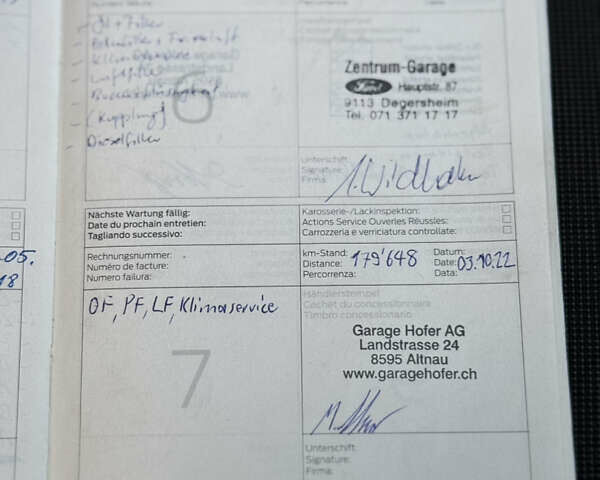 Öl + Filter
Klimaservice
Luftfilter
Bremsflüssigkeit
[Kupplung]
Dieselfilter
6
Zentrum-Garage
Ford Hauptstr. 87
9113 Degersheim
Tel. 071 371 17 17
Unterschrift:
Signature:
Firma:
Nächste Wartung fällig:
Date du prochain entretien:
Tagliando successivo:
Karosserie-/Lackinspektion:
Actions Service Ouvertes Réussies:
Carrozzeria e verniciatura controllate:
05.
18
Rechnungsnummer:
Numéro de facture:
Numero failura:
km-Stand:
Distance: 179'648
Percorrenza:
Datum:
Date: 03.10.22
Data:
ÖF, PF, LF, Klimaservice
7
Händlerstempel
Cachet du concessionnaire
Timbro concessionario
Garage Hofer AG
Landstrasse 24
8595 Altnau
www.garagehofer.ch
Unterschrift:
Signature:
Firma: